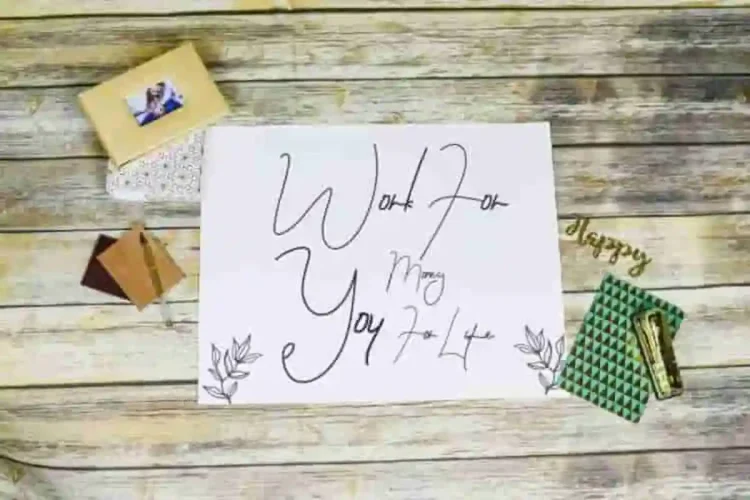 Work For
Money
Yoy For Life
Happy